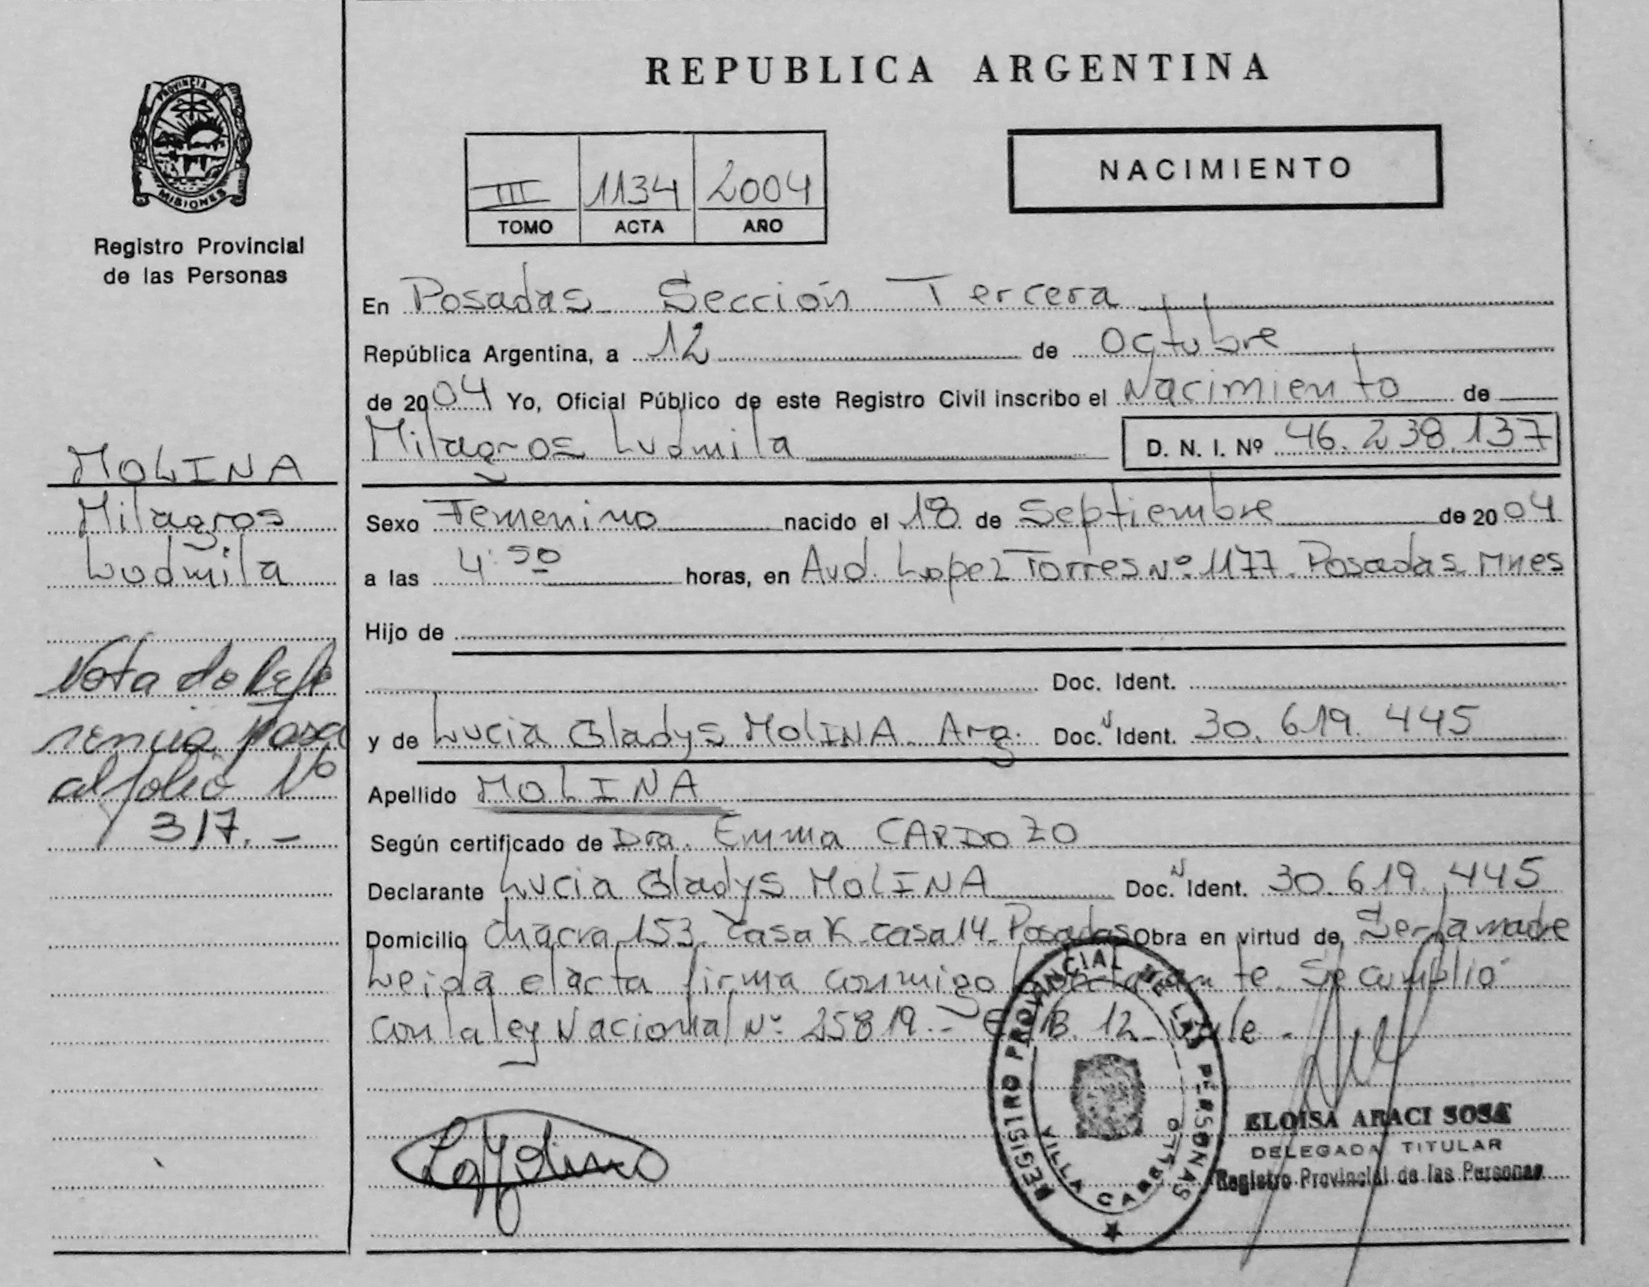 REPUBLICA ARGENTINA
PROVINCIA DE
MISIONES
Registro Provincial
de las Personas
III 1134 2004
TOMO ACTA AÑO
NACIMIENTO
En Posadas Sección Tercera
República Argentina, a 12 de Octubre
de 2004 Yo, Oficial Público de este Registro Civil inscribo el Nacimiento de
Milagros Ludmila D. N. I. Nº 46.238.137
MOLINA
Milagros
Ludmila
Nota de Refe
rencia Pasa
al folio Nº
317.-
Sexo Femenino nacido el 18 de Septiembre de 2004
a las 4:50 horas, en Avd. Lopez Torres Nº 1177. Posadas Mnes
Hijo de
Doc. Ident.
y de Lucia Gladys MOLINA Arg. Doc. Ident. 30.619.445
Apellido MOLINA
Según certificado de Dra. Emma CARDOZO
Declarante Lucia Gladys MOLINA Doc. Ident. 30.619.445
Domicilio Chacra 153. Casa K casa 14. Posadas Obra en virtud de Ser la madre
Leida el acta firma conmigo Se cumplio
con la ley Nacional Nº 25819.- 12 Vale.-
REGISTRO PROVINCIAL DE LAS PERSONAS
VILLA CABELLO
ELOISA ARACI SOSA
DELEGADA TITULAR
Registro Provincial de las Personas